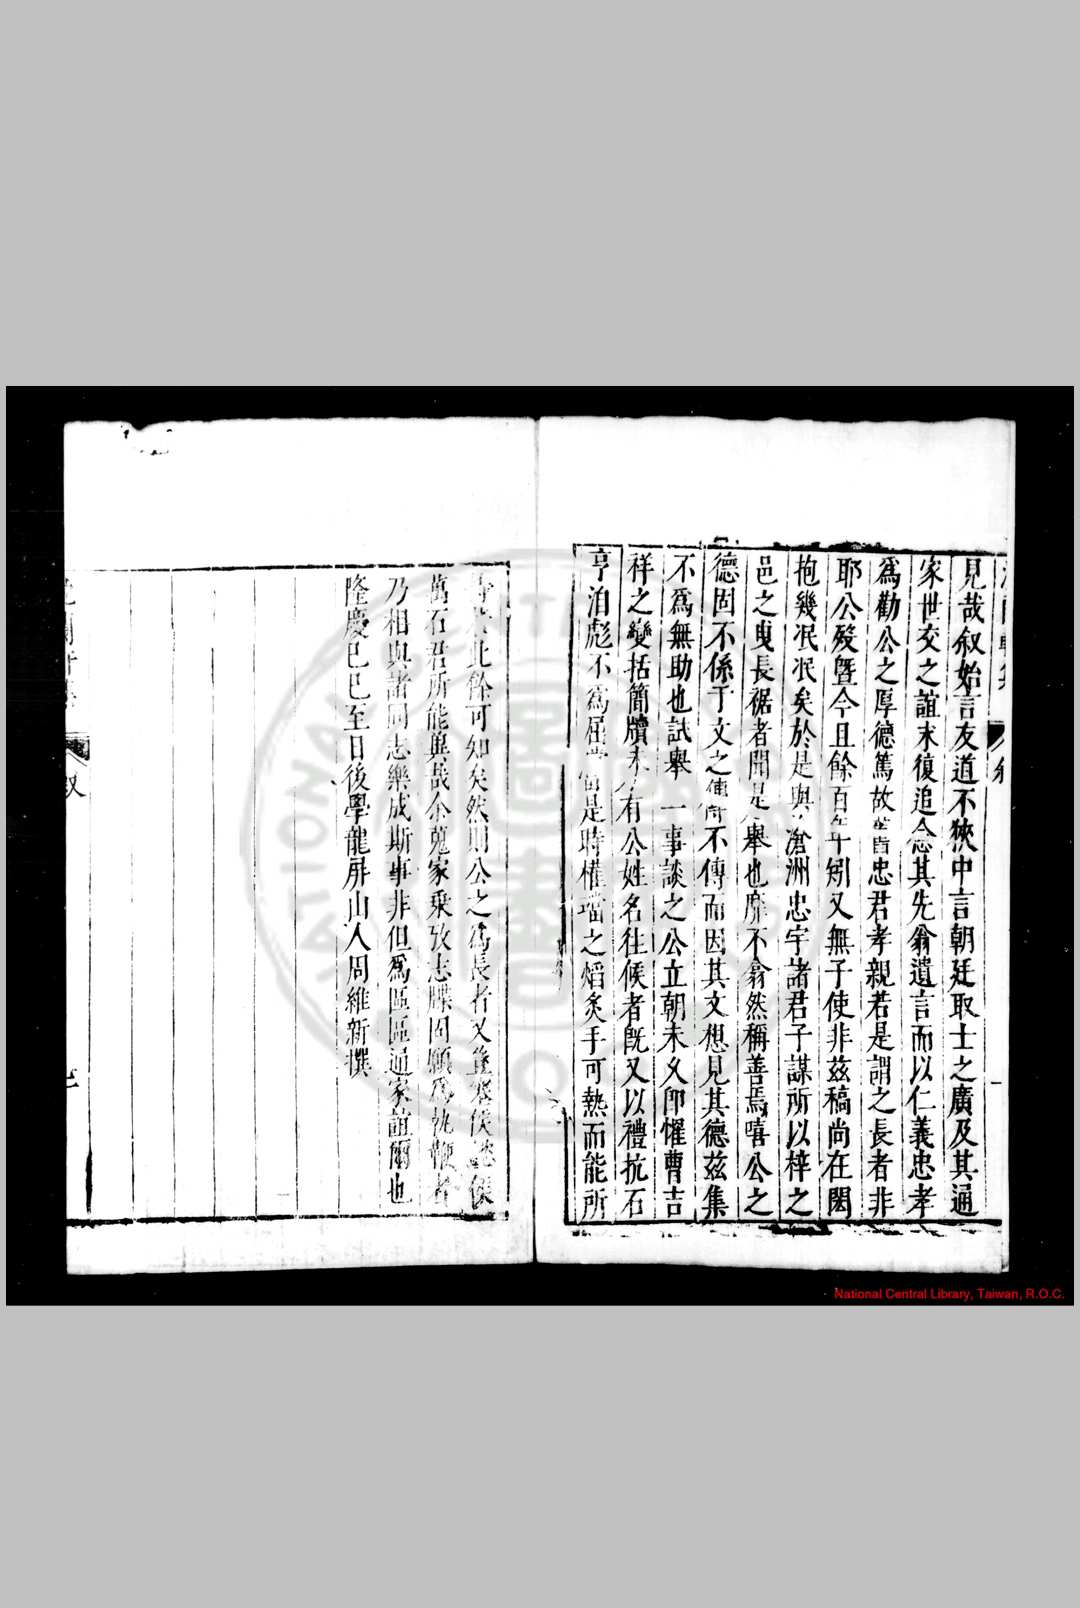 見哉叙始言友道不狹中言朝廷取士之廣及其通
家世交之誼末復追念其先翁遺言而以仁義忠孝
爲勸公之厚德篤故皆忠君孝親若是謂之長者非
耶公殁曁今且餘百年矧又無子使非茲稿尚在閟
抱幾泯泯矣於是與滄洲忠宇諸君子謀所以梓之
邑之曳長裾者聞是舉也靡不翕然稱善焉嘻公之
德固不係于文之傳不傳而因其文想見其德茲集
不爲無助也試舉一事談之公立朝未久卽懼曹吉
祥之變括簡牘未有公姓名往候者旣又以禮抗石
亨泊彪不爲屈當是時權璫之熖炙手可熱而能所
此餘可知矣然則公之爲長者又豈塞侯
萬石君所能與哉余蒐家乗攷志牒固願爲執鞭者
乃相與諸同志樂成斯事非但爲區區通家誼爾也
隆慶己巳至日後學龍屏山人周維新撰
叙
七
National Central Library, Taiwan, R.O.C.